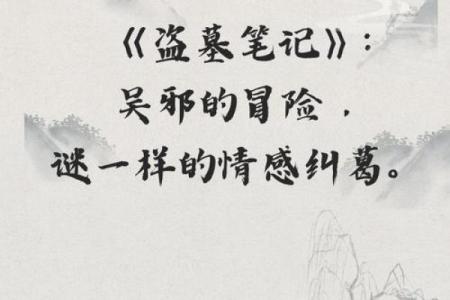 《盗墓笔记》：
吴邪的冒险，
谜一样的情感纠葛。